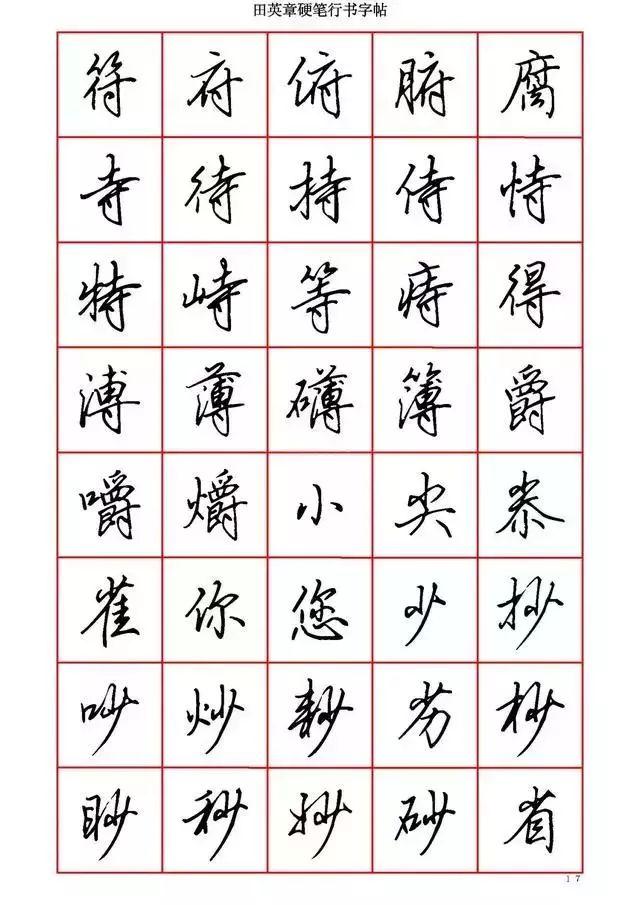 田英章硬笔行书字帖
符 府 俯 腑 腐
寺 待 持 侍 恃
特 峙 等 痔 得
溥 薄 礴 簿 爵
嚼 爝 小 尖 尜
雀 你 您 少 抄
吵 炒 耖 劣 杪
眇 秒 妙 砂 省
17